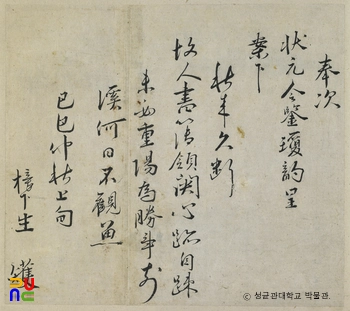 奉次
狀元令鑒瓊韵呈
案下
秋來久斷
故人書 領閑心跡自疎
未必重陽爲勝事
溪何日不觀魚
己巳仲秋上旬
下生
ⓒ 성균관대학교 박물관.